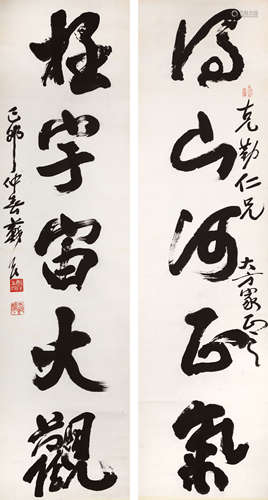 得山河正氣
克勤仁兄 大方家正之
極宇宙大觀
己卯仲春